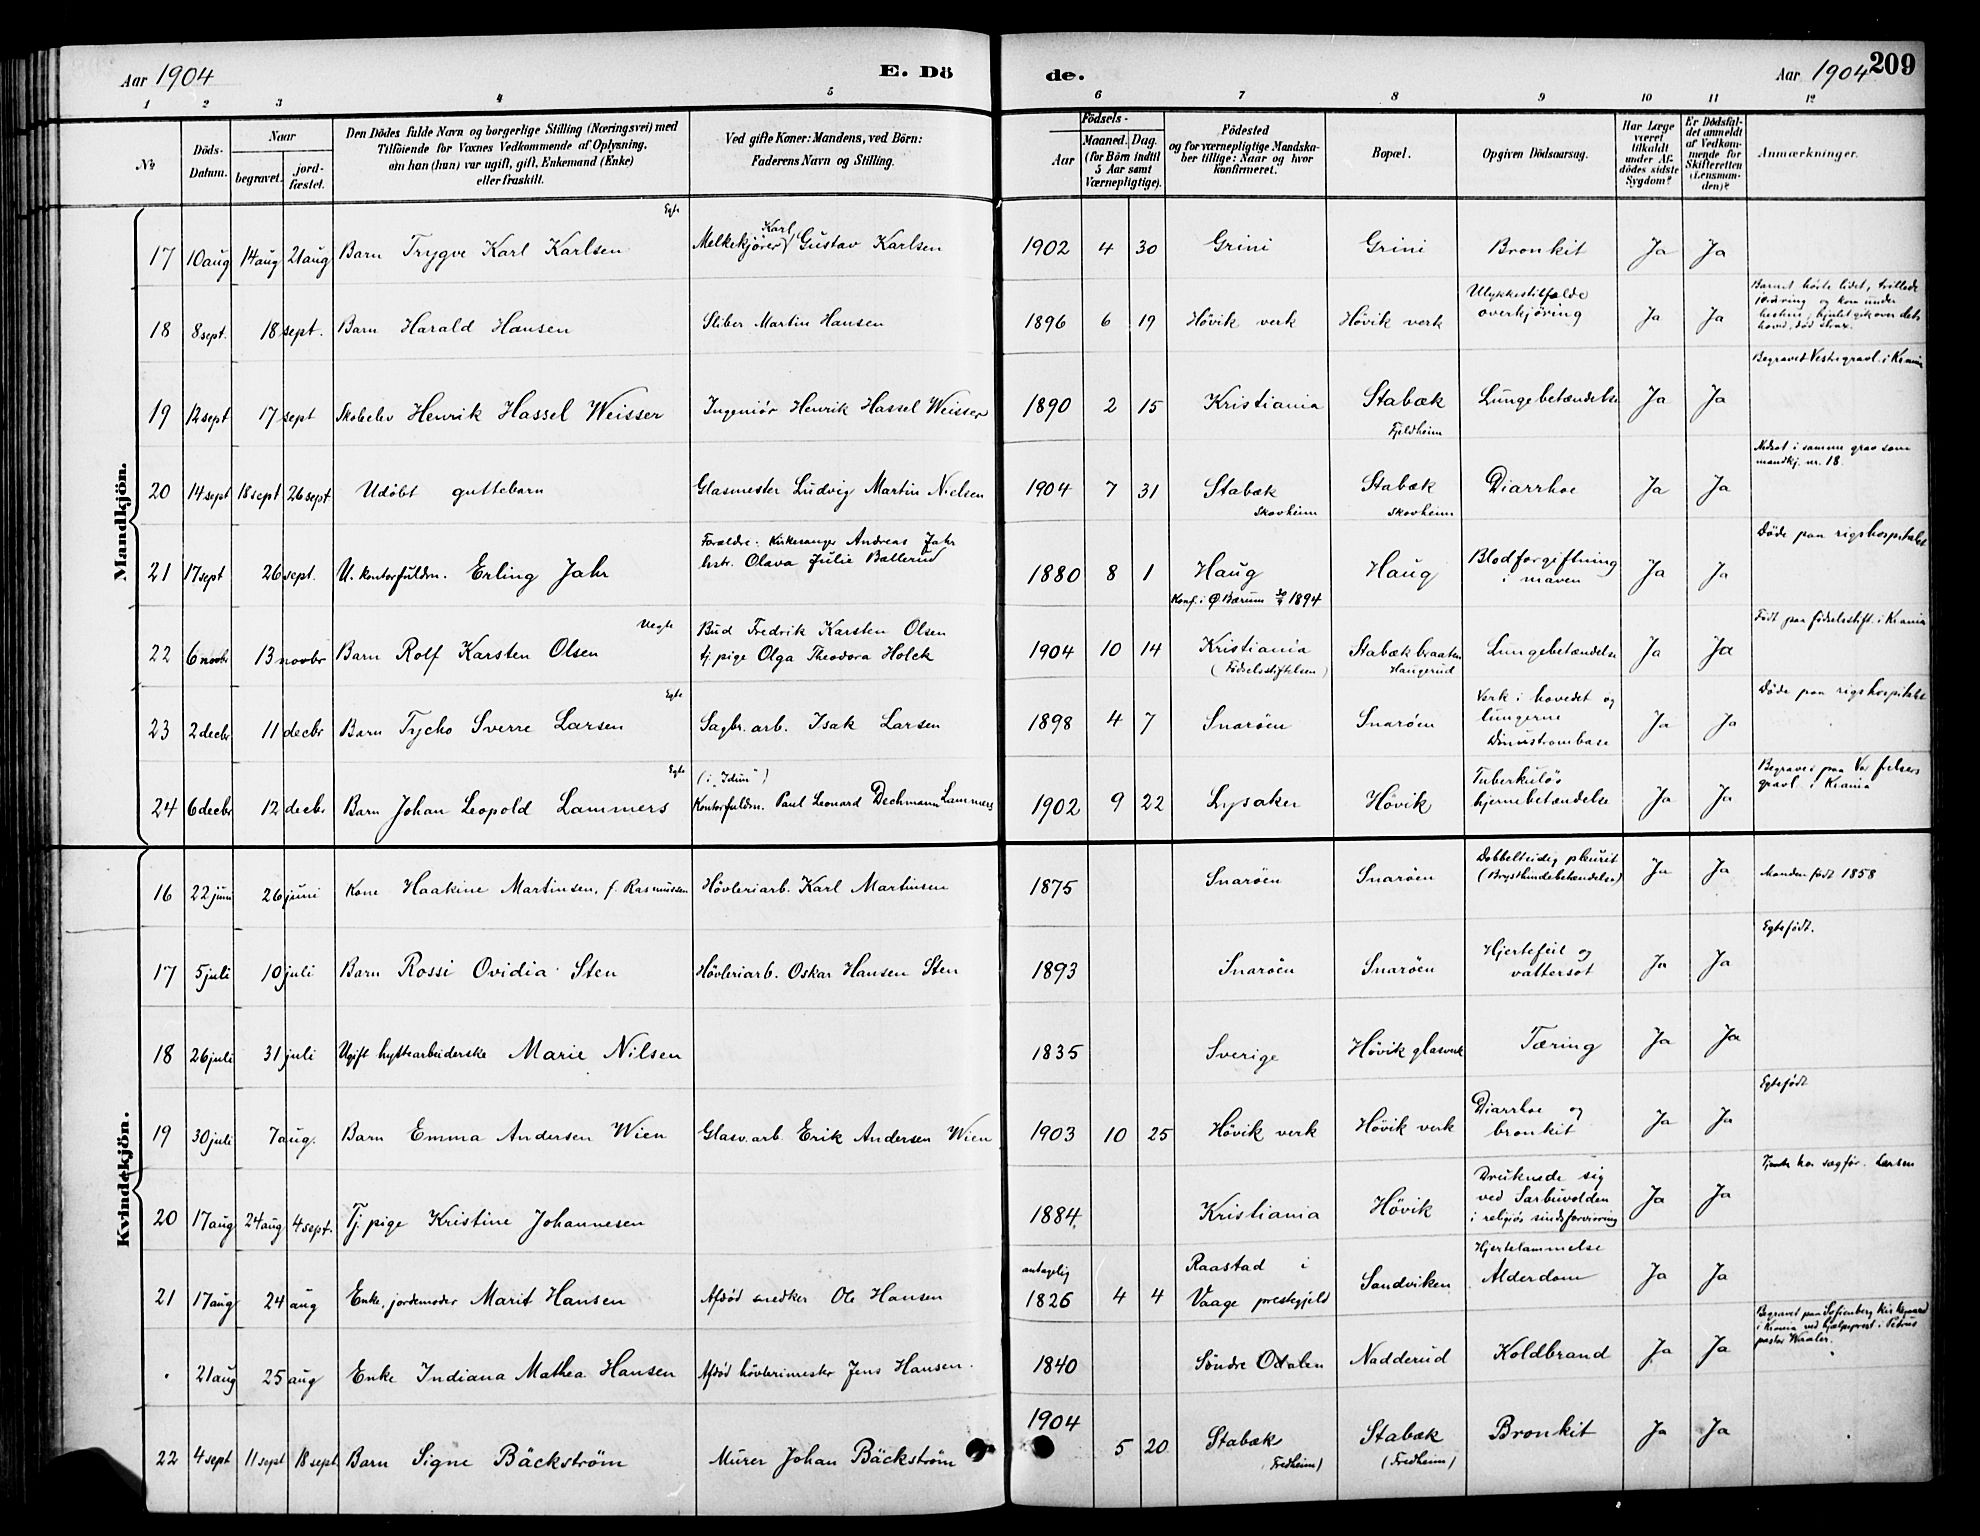 Aar 1904 E. Dö de. Aar 1904 209
1 2 3 4 5 6 7 8 9 10 11 12
No
Döds-Datum.
Naar
begravet.
jord-fæstet.
Den Dödes fulde Navn og borgerlige Stilling (Næringsvei) med
Tilföiende for Voxnes Vedkommende af Oplysning,
om han (hun) var ugift, gift, Enkemand (Enke)
eller fraskilt.
Ved gifte Koner: Mandens, ved Börn:
Faderens Navn og Stilling.
Födsels-
Aar
Maaned. Dag.
(for Börn indtil
5 Aar samt
Værnepligtige).
Födested
og for værnepligtige Mandska-
ber tillige: Naar og hvor
konfirmeret.
Bopæl.
Opgiven Dödsaarsag.
Har Læge
været
tilkaldt
under Af-
dödes sidste
Sygdom?
Er Dödsfal-
det anmeldt
af Vedkom-
mende for
Skifteretten
(Lensman-
den)?
Anmærkninger.
Mandkjön.
Egte
17 10 aug 14 aug 21 aug Barn Trygve Karl Karlsen Melkekjører Karl Gustav Karlsen 1902 4 30 Grini Grini Bronkit Ja Ja
18 8 sept. 18 sept. Barn Harald Hansen Sliber Martin Hansen 1896 6 19 Hövik verk Hövik verk Ulykkestilfælde
overkjöring Ja Ja Barnet hørte lidet, trillede
og kom under
hestene, hjulet gik over dets
hoved, död strax.
19 12 sept 17 sept Skoleelev Henrik Hassel Weisser Ingeniör Henrik Hassel Weisser 1890 2 15 Kristiania Stabæk
Fjeldheim Lungebetændelse Ja Ja Begravet Vestre gravl. i Krania
20 14 sept 18 sept 26 sept Udöbt guttebarn Glasmester Ludvig Martin Nielsen 1904 7 31 Stabæk
Skovheim Stabæk
Skovheim Diarrhoe Ja Ja Nedsat i samme grav som
mandkj. nr. 18.
21 17 sept 26 sept. U. kontorfuldm. Erling Jahr Forældre: Kirkesanger Andreas Jahr
hstr. Olava Julie Ballerud 1880 8 1 Haug
Konf. i Ø Bærum 30/9 1894 Haug Blodforgiftning
i maven Ja Ja Döde paa rigshospitalet
Uegte
22 6 novbr 13 novbr Barn Rolf Karsten Olsen Bud Fredrik Karsten Olsen
tj. pige Olga Theodora Holck 1904 10 14 Kristiania
(Födselsstiftelsen) Stabæk braaten
Haugerud Lungebetændelse Ja Ja Födt paa födselsstift. i Krania
Egte
23 2 decbr 11 decbr Barn Tycho Sverre Larsen Sagbr. arb. Isak Larsen 1898 4 7 Snaröen Snaröen Verk i hovedet og
lungerne
Ja Ja Döde paa rigshospitalet
Egte
24 6 decbr 12 decbr Barn Johan Leopold Lammers (i "Idun")
Kontorfuldm. Paul Leonard Dechmann Lammers 1902 9 22 Lysaker Hövik Tuberkulös
hjernebetændelse Ja Ja Begravet paa Vor frelsers
gravl. i Krania
Kvindekjön.
16 22 juni 26 juni Kone Haakine Martinsen, f. Rasmussen Hövleriarb. Karl Martinsen 1875 Snaröen Snaröen Dobbeltsidig pleurit
(Brysthindebetændelse) Ja Ja Manden födt 1858
17 5 juli 10 juli Barn Rossi Ovidia Sten Hövleriarb. Oskar Hansen Sten 1893 Snaröen Snaröen Hjertefeil og
vattersot Ja Ja Egtefödt.
18 26 juli 31 juli Ugift hyttearbeiderske Marie Nilsen 1835 Sverige Hövik glasverk Tæring Ja Ja
19 30 juli 7 aug. Barn Emma Andersen Wien Glasv. arb. Erik Andersen Wien 1903 10 25 Hövik verk Hövik verk Diarrhoe og
bronkit Ja Ja Egtefödt
20 17 aug 24 aug 4 sept. Tj. pige Kristine Johannesen 1884. Kristiania Hövik Druknede sig
ved Sarbuvolden
i religiös sindsforvirring Ja Ja Tjente hos sagför. Larsen
21 17 aug 24 aug Enke, jordemoder Marit Hansen Afdöd snedker Ole Hansen antagelig
1826 4 4 Raastad i
Vaage prestegjeld Sandviken Hjertelammelse
Alderdom Ja Ja
21 aug 25 aug Enke Indiana Mathea Hansen Afdöd hövlerimester Jens Hansen. 1840 Söndre Odalen Nadderud Koldbrand Ja Ja Begravet paa Sofienberg kirkegaard
i Krania ved hjælpeprest i Petrus
pastor Waaler.
22 4 sept 11 sept 18 sept Barn Signe Bäckström Murer Johan Bäckström 1904 5 20 Stabæk
(Fredheim) Stabæk
(Fredheim) Bronkit Ja Ja